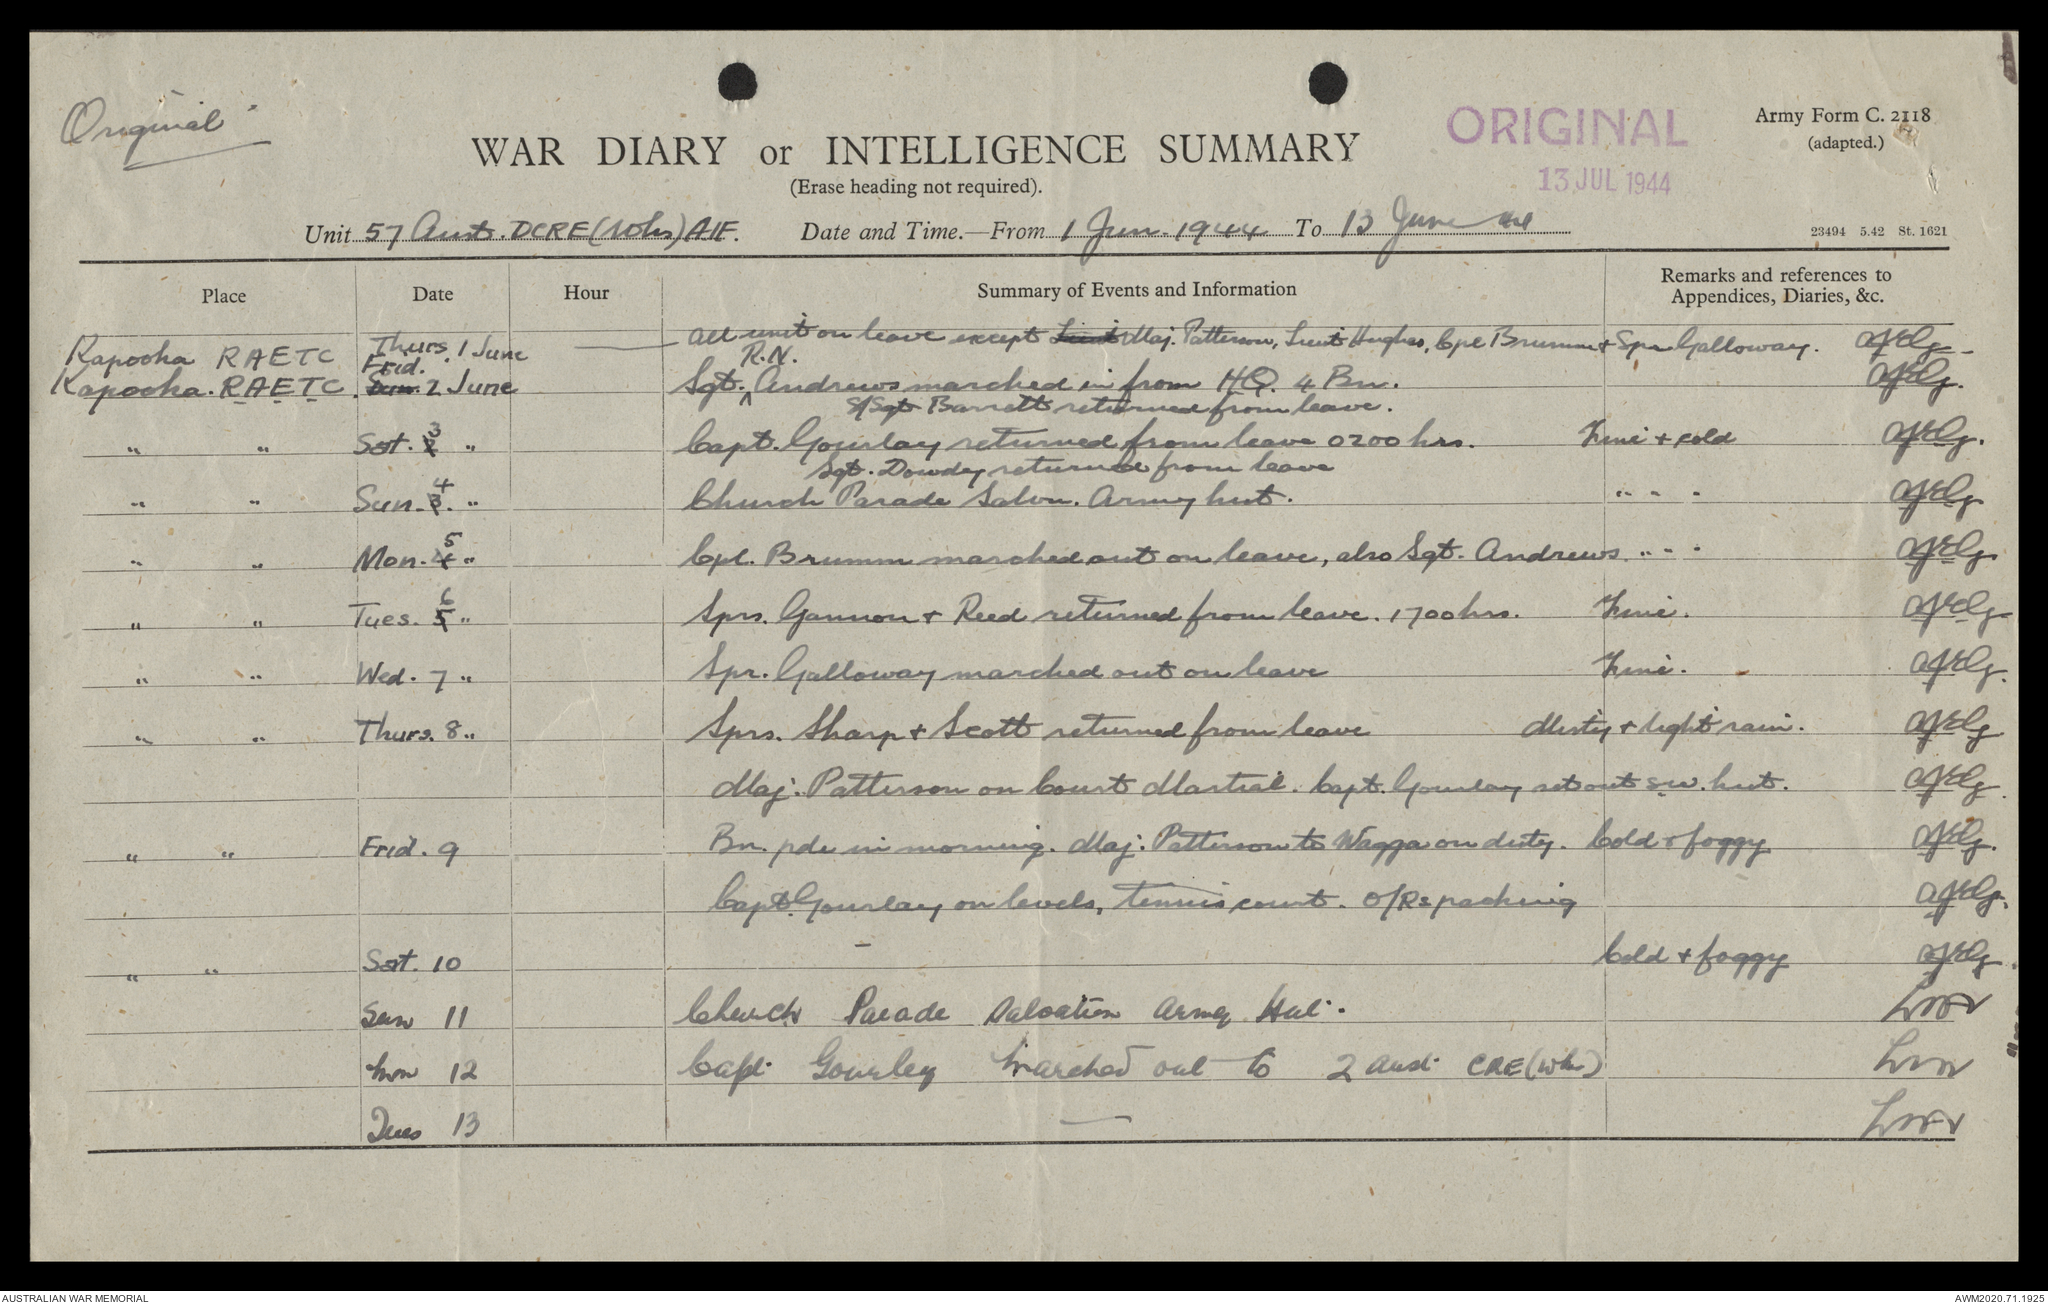 Original
ORIGINAL
13 JUL 1944
Army Form C. 2118
(adapted.)
WAR DIARY or INTELLIGENCE SUMMARY
(Erase heading not required).
Unit 57 Aust. DCRE (Wks) AIF. Date and Time.—From 1 Jun. 1944 To 13 June 44
23494 5.42 St. 1621
Place Date Hour Summary of Events and Information Remarks and references to Appendices, Diaries, &c.
Kapooka RAETC Thurs. 1 June All unit on leave except Lieut Maj. Patterson, Lieut Hughes, Cpl Brumm & Spr Galloway.
Kapooka. RAETC. Frid. 2 June Sgt. R.N. Andrews marched in from HQ. 4 Bn.
S/Sgt Barrett returned from leave.
" " Sat. 3 " Capt. Gourlay returned from leave 0200 hrs. Fine + cold
Sgt. Dowdey returned from leave
" " Sun. 4 " Church Parade Salvn. Army hut. " " "
" " Mon. 5 " Cpl. Brumm marched out on leave, also Sgt. Andrews. " " "
" " Tues. 6 " Sprs. Gannon + Reed returned from leave. 1700 hrs. Fine.
" " Wed. 7 " Spr. Galloway marched out on leave Fine.
" " Thurs. 8 " Sprs. Sharp + Scott returned from leave Misty + light rain.
Maj. Patterson on Court Martial. Capt. Gourlay set out sw. hut.
" " Frid. 9 Bn. pde in morning. Maj. Patterson to Wagga on duty. Cold + foggy
Capt. Gourlay on levels, tennis court. O/Rs packing
" " Sat. 10 – Cold + foggy
Sun 11 Church Parade Salvation Army Hut.
Mon 12 Capt. Gourlay marched out to 2 Aust. CRE (Wks)
Tues 13 —
AUSTRALIAN WAR MEMORIAL
AWM2020.71.1925